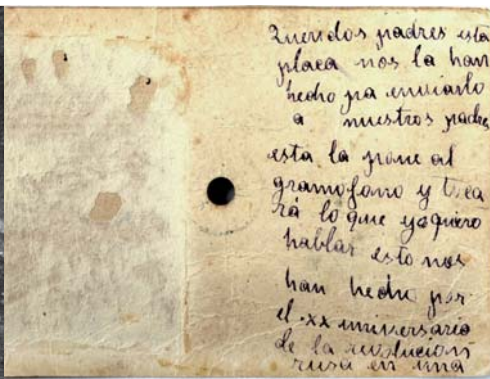 Queridos padres esta
placa nos la han
hecho pa enviarlo
a nuestros padres
esta la pone al
gramofono y toca
rá lo que yo quiero
hablar esto nos
han hecho por
el xx universario
de la revolucion
rusa en una